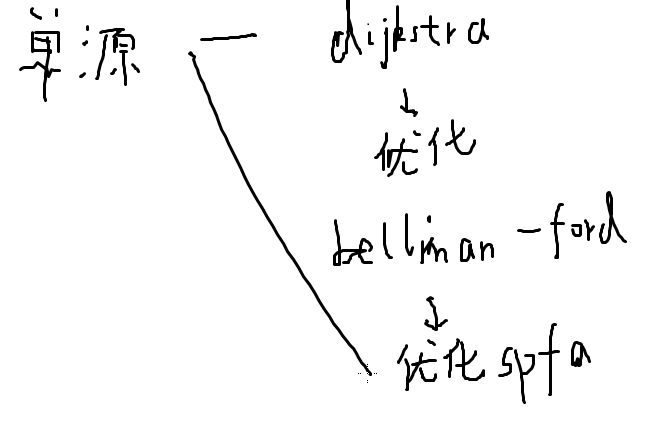 单源 — dijkstra
↓
优化
bellman-ford
↓
优化 spfa